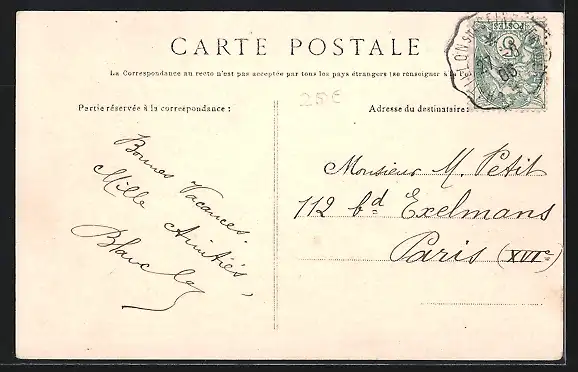 CARTE POSTALE
La Correspondance au recto n'est pas acceptée par tous les pays étrangers (se renseigner à la
Partie réservée à la correspondance :
25€
Adresse du destinataire :
Bonnes Vacances.
Mille Amitiés,
Monsieur M. Petit
112 bd Exelmans
Paris (XVIe)
POSTES